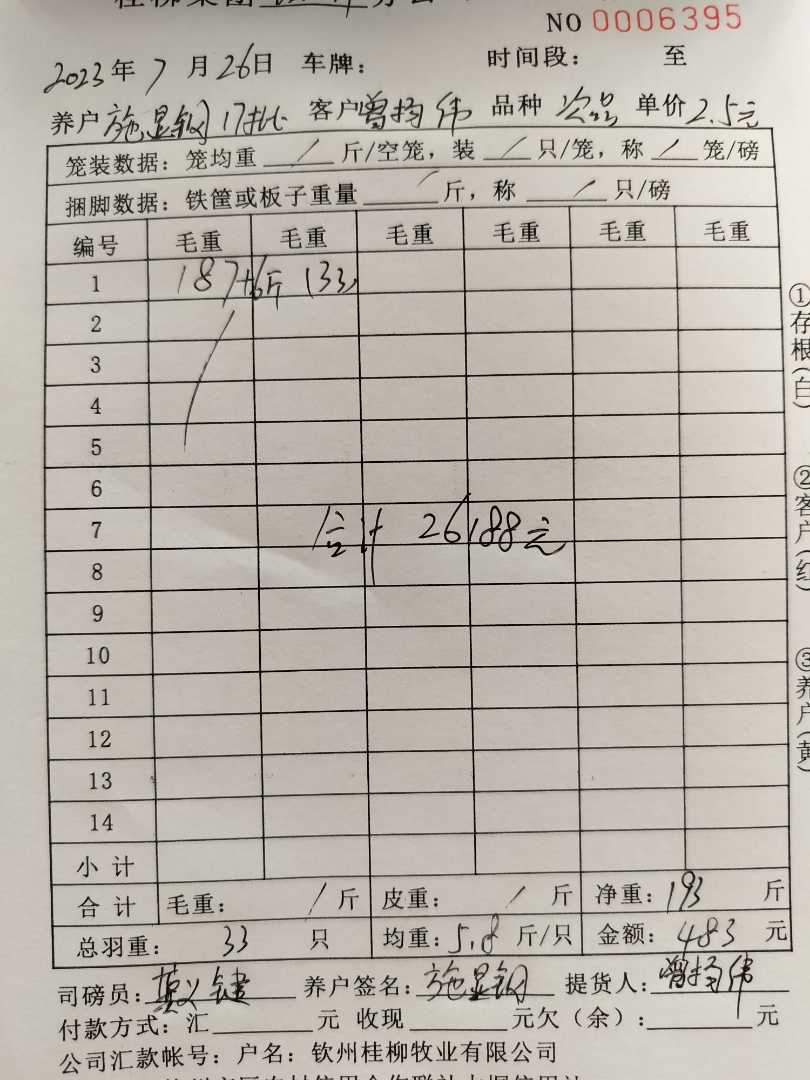 桂柳集团
NO 0006395
2023年7月26日 车牌: 时间段: 至
养户 施显钢 17批 客户 曾扬伟 品种 次品 单价 2.5元
笼装数据: 笼均重 / 斤/空笼, 装 / 只/笼, 称 / 笼/磅
捆脚数据: 铁筐或板子重量 / 斤, 称 / 只/磅
编号 毛重 毛重 毛重 毛重 毛重 毛重
1 187+6斤 (33)
2
3
4
5
6
7 合计 26188元
8
9
10
11
12
13
14
小计
合计 毛重: / 斤 皮重: / 斤 净重: 193 斤
总羽重: 33 只 均重: 5.8 斤/只 金额: 483 元
司磅员: 养户签名: 施显钢 提货人: 曾扬伟
付款方式: 汇 元 收现 元欠(余): 元
公司汇款帐号: 户名: 钦州桂柳牧业有限公司
①存根(白)
②客户(红)
③养户(黄)